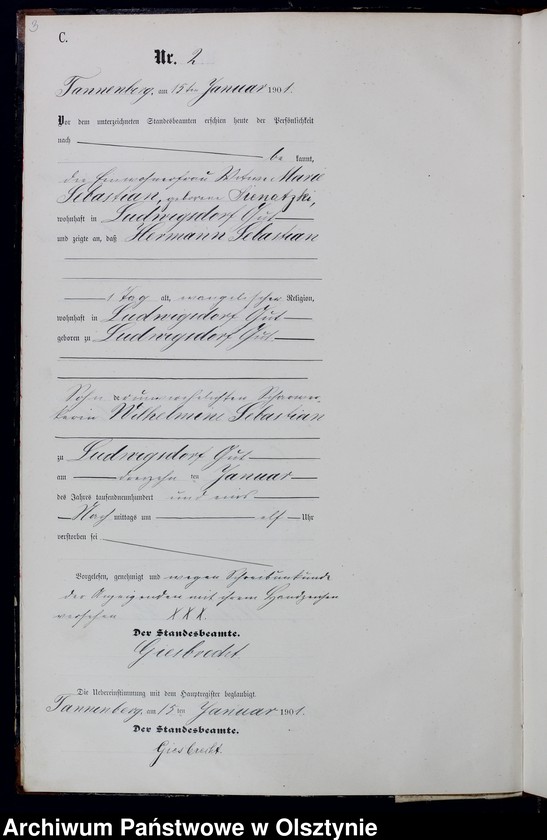 3
C.
Nr. 2
Tannenberg, am 15ten Januar 1901.
Vor dem unterzeichneten Standesbeamten erschien heute der Persönlichkeit
nach
be kannt,
die Einwohnerfrau Witwe Marie
Sebastian, geborene
wohnhaft in Ludwigsdorf Gut
und zeigte an, daß Hermann Sebastian
1 Tag alt, evangelischer Religion,
wohnhaft in Ludwigsdorf Gut
geboren zu Ludwigsdorf Gut
Sohn der unverehelichten Scharwer-
kerin Wilhelmine Sebastian
zu Ludwigsdorf Gut
am dreizehn ten Januar
des Jahrs tausendneunhundert und eins
Nach mittags um elf Uhr
verstorben sei
Vorgelesen, genehmigt und wegen Schreibunkunde
der Anzeigenden mit ihrem Handzeichen
versehen XXX.
Der Standesbeamte.
Giesbrecht.
Die Uebereinstimmung mit dem Hauptregister beglaubigt.
Tannenberg, am 15ten Januar 1901.
Der Standesbeamte.
Giesbrecht.
Archiwum Państwowe w Olsztynie